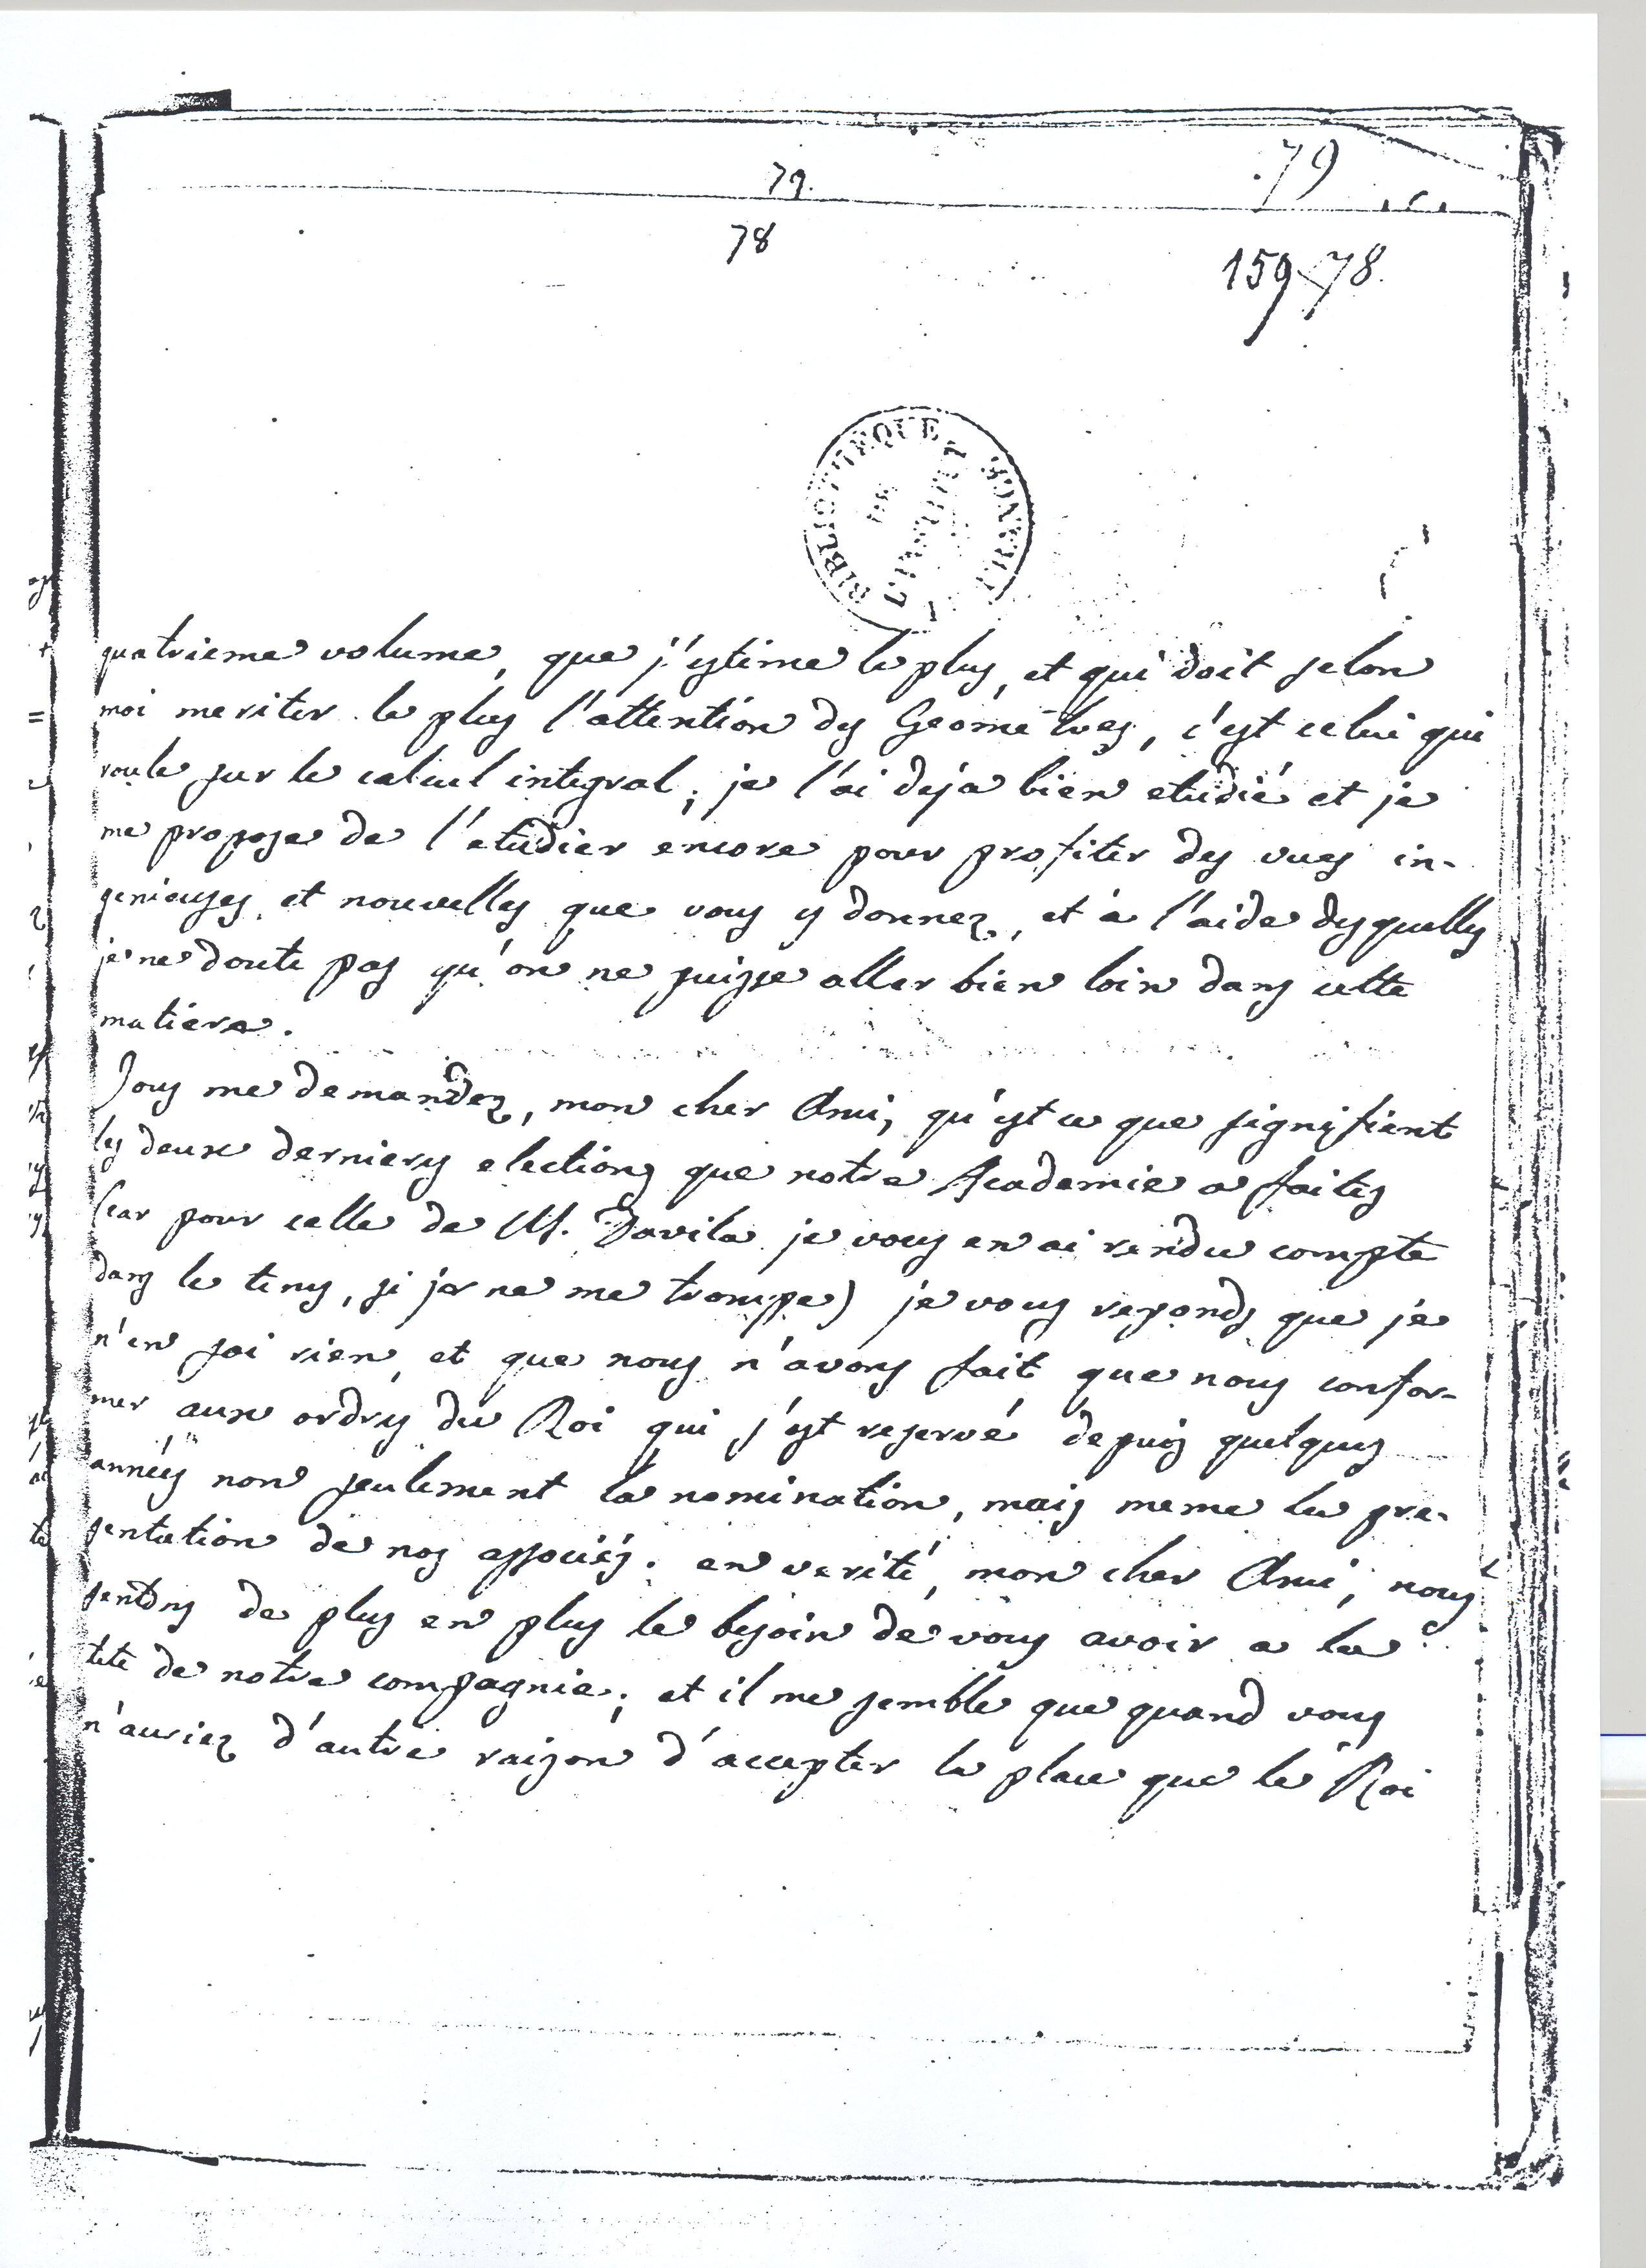 79.
79
78
159 78.
BIBLIOTHEQUE DE L'INSTITUT FRANCE
quatrieme volume, que j'estime le plus, et qui doit selon
moi meriter le plus l'attention des Geometres, c'est celui qui
roule sur le calcul integral; je l'ai deja bien etudié et je
me propose de l'etudier encore pour profiter des vues in-
genieuses et nouvelles que vous y donnez, et à l'aide desquelles
je ne doute pas qu'on ne puisse aller bien loin dans cette
matiere.
Vous me demandez, mon cher Ami, qu'est ce que signifient
les deux dernieres elections que notre Academie a faites
(car pour celle de M. Davila je vous en ai rendu compte
dans le tems, si je ne me trompe) je vous reponds que je
n'en sai rien, et que nous n'avons fait que nous confor-
mer aux ordres du Roi qui s'est reservé depuis quelques
années non seulement la nomination, mais meme la pre-
sentation de nos associés. en verité, mon cher Ami, nous
sentons de plus en plus le besoin de vous avoir a la
tete de notre compagnie; et il me semble que quand vous
n'auriez d'autre raison d'accepter la place que le Roi